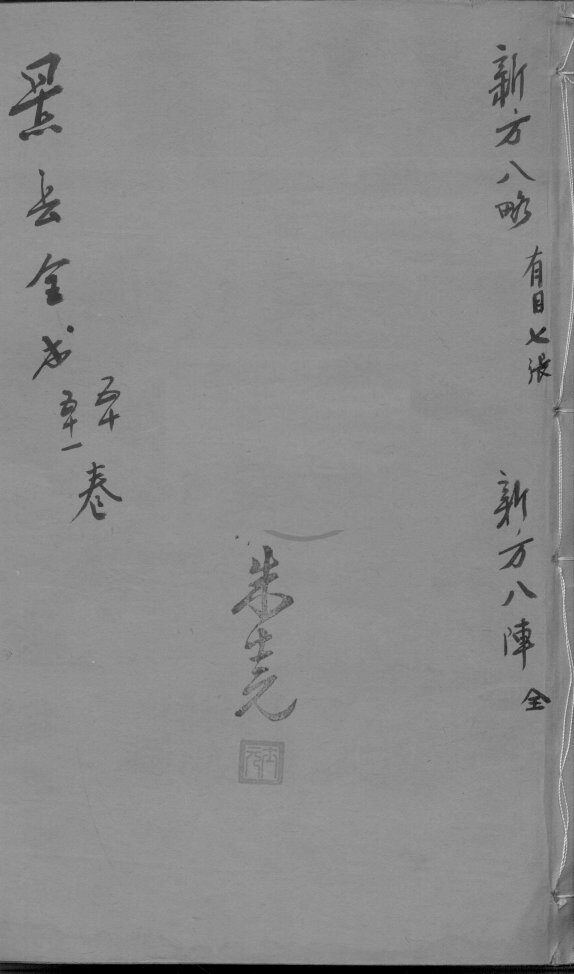 新方八略 有目七張
新方八陣 全
朱堯
景岳全书
五十
五十一
卷